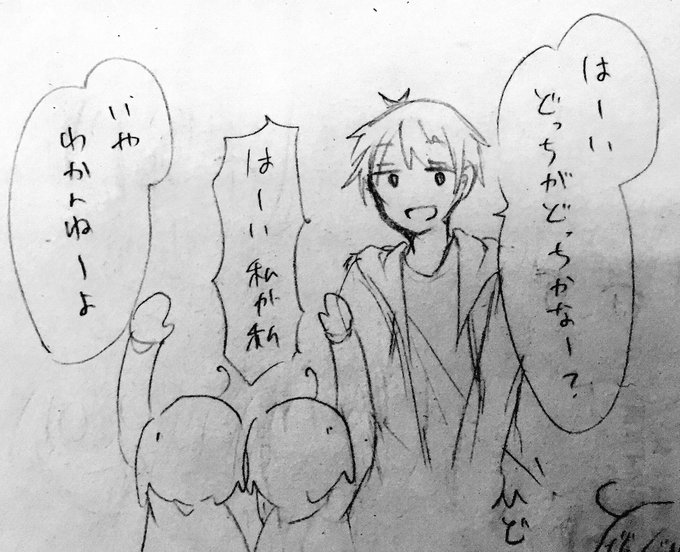 はーい
どっちがどっちかなー?
はーい
私が私
いや
わかんねーよ